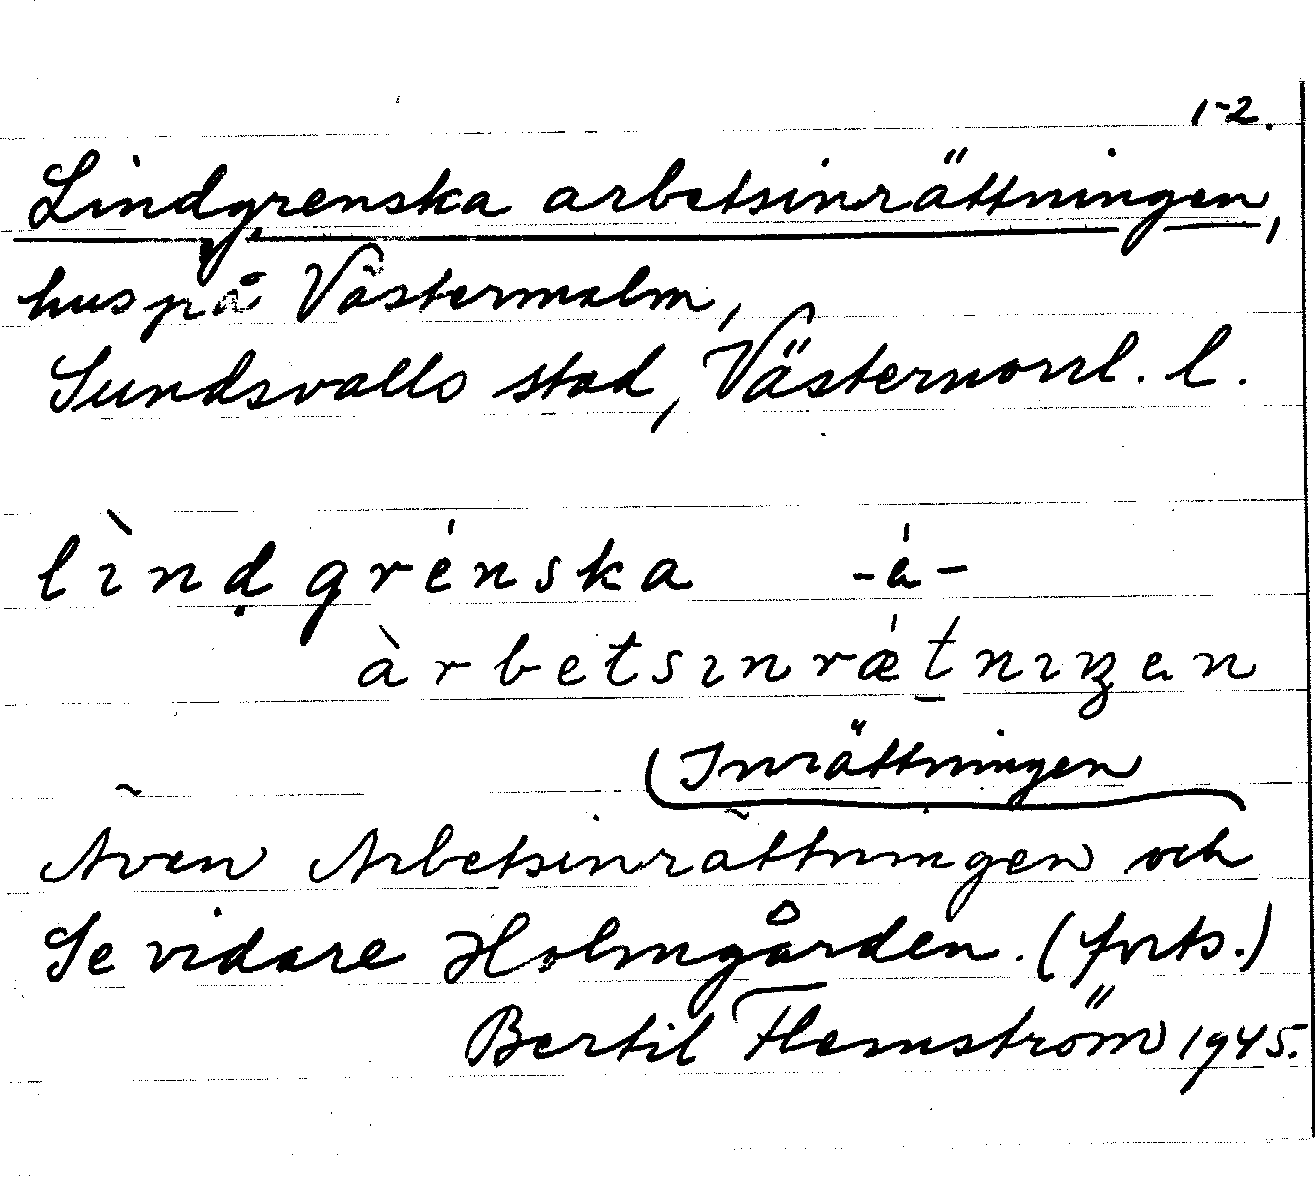 1-2.
Lindgrenska arbetsinrättningen,
hus på Västermalm,
Sundsvalls stad, Västernorrl. l.
lìnḍgrénska -á-
àrbetsınrǽt̠nıŋen
Inrättningen
Även Arbetsinrättningen och
Se vidare Holmgården. (forts.)
Bertil Flemström 1945.